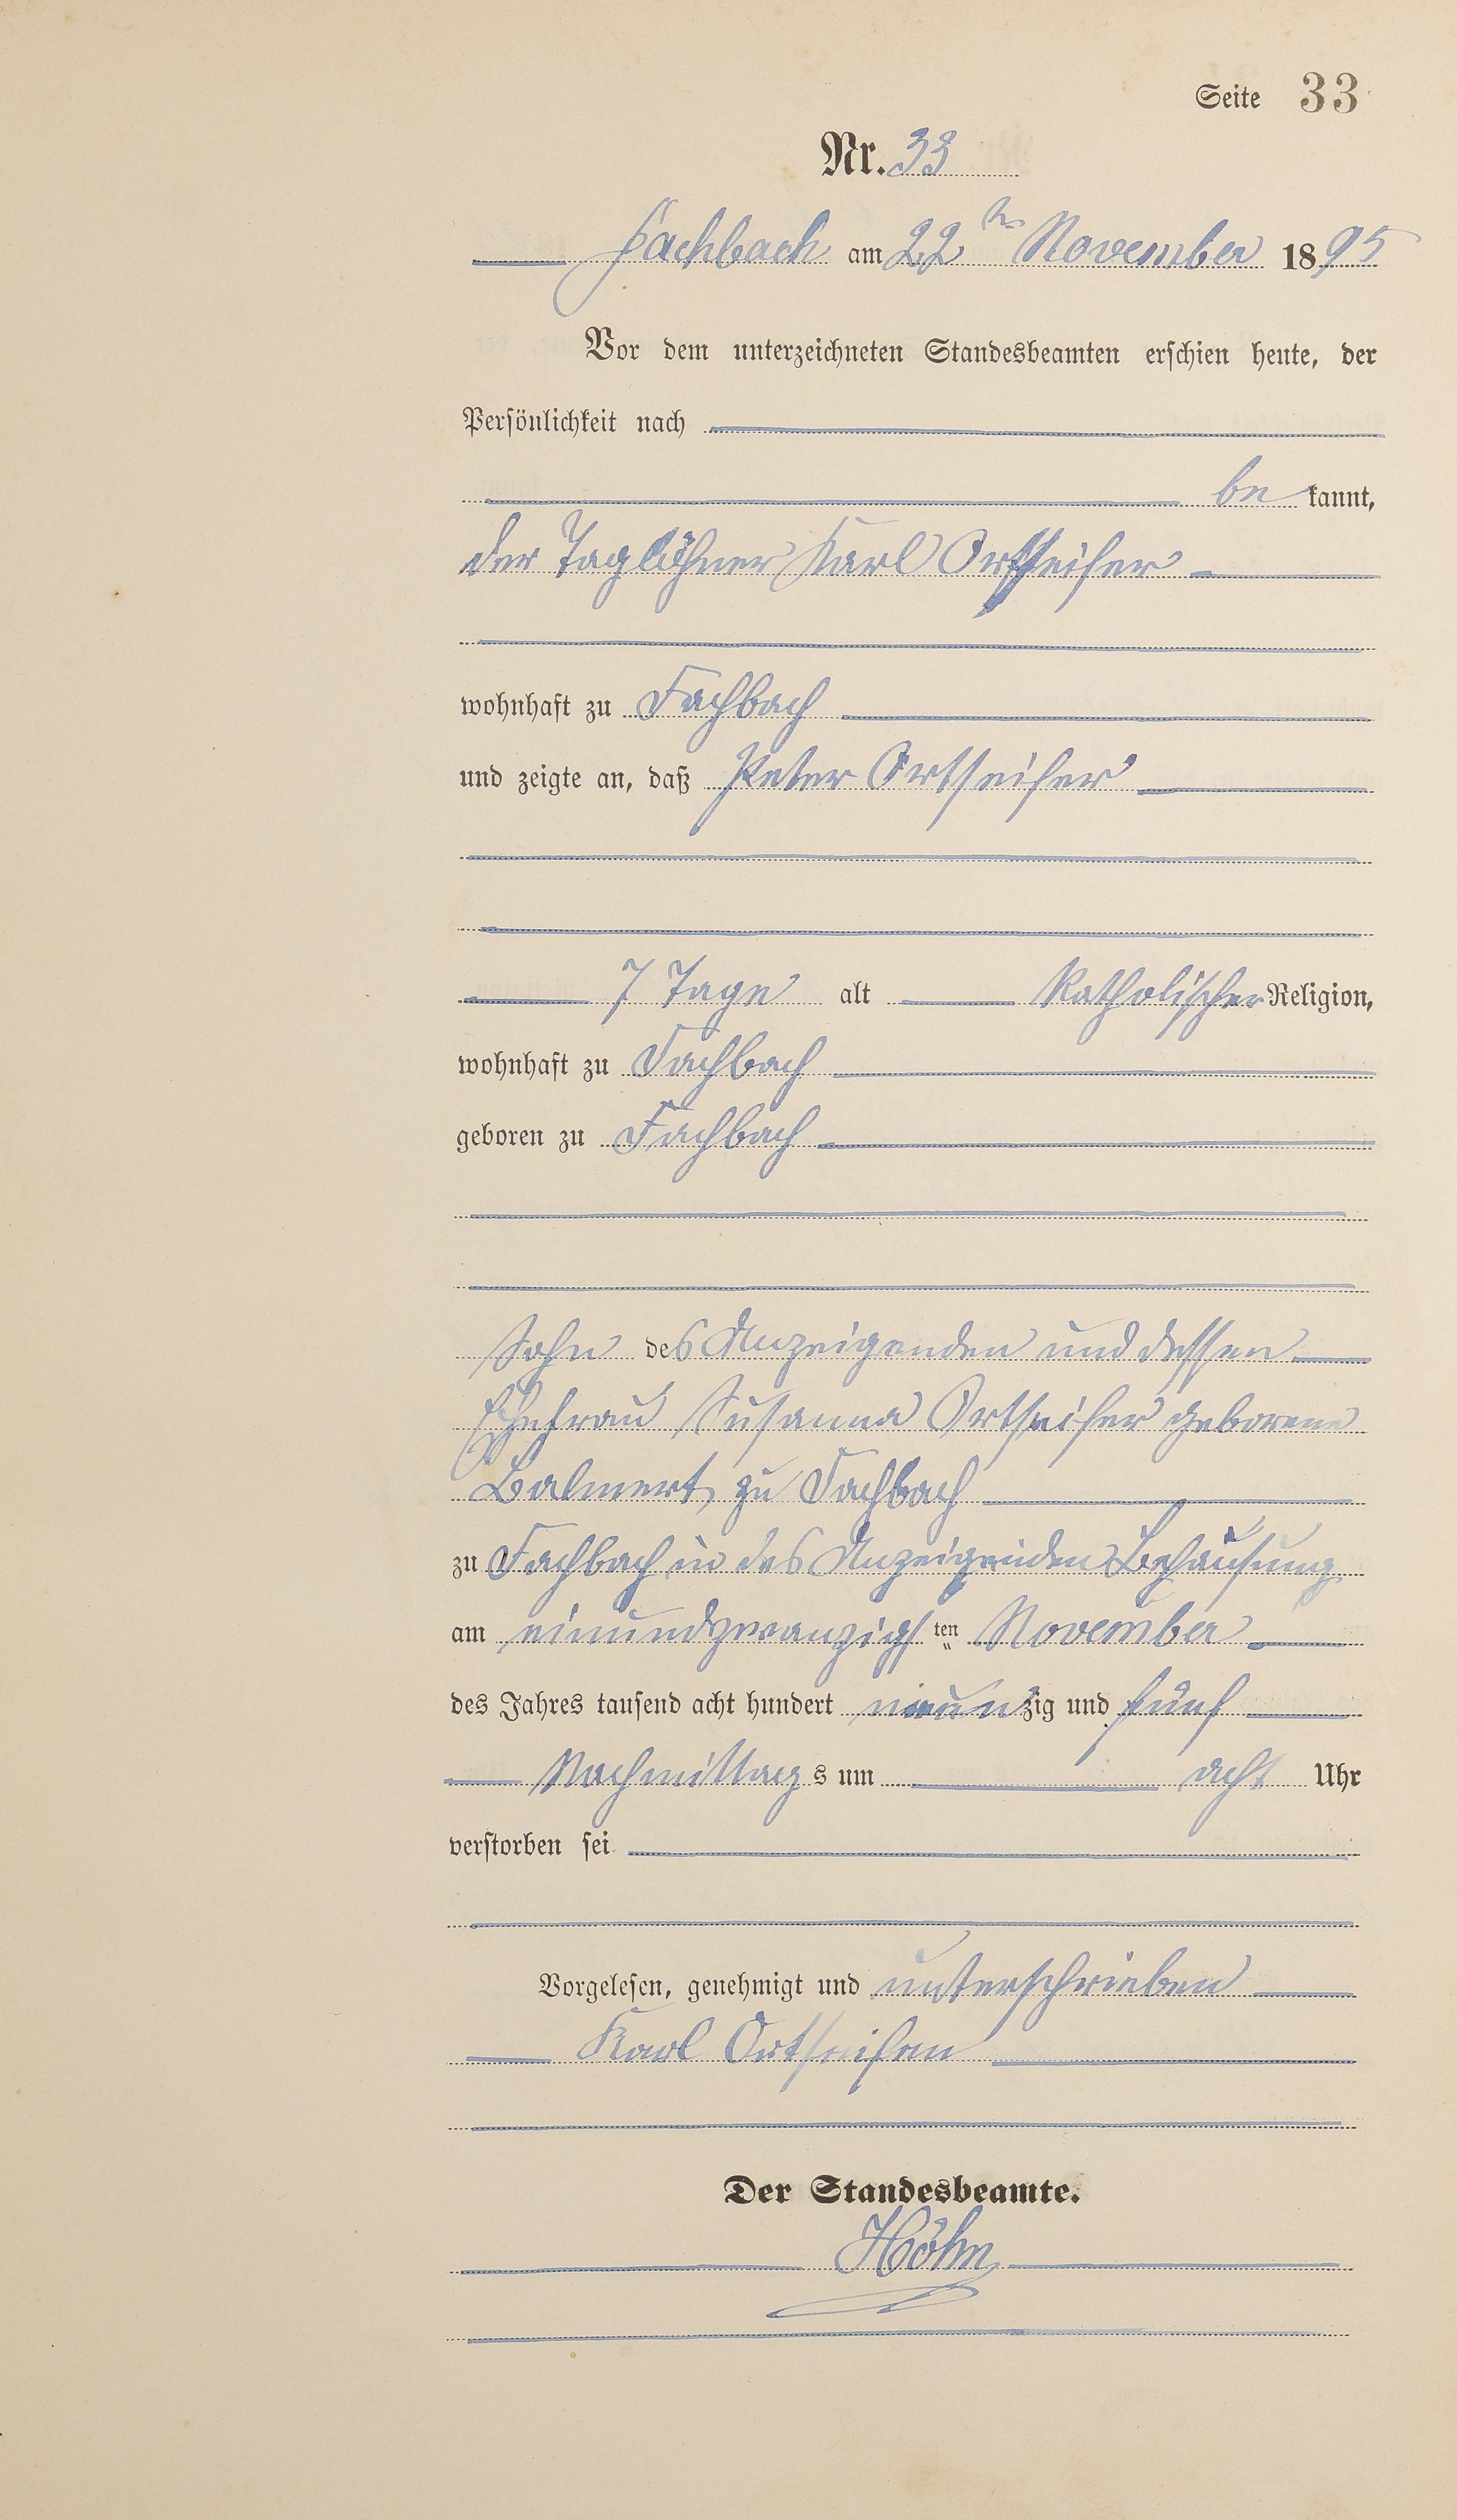 Seite 33
Nr. 33
Fachbach am 22ten November 1895
Vor dem unterzeichneten Standesbeamten erschien heute, der
Persönlichkeit nach
be kannt,
der Taglöhner Karl Ortseifer
wohnhaft zu Fachbach
und zeigte an, daß Peter Ortseifer
7 Tage alt katholischer Religion,
wohnhaft zu Fachbach
geboren zu Fachbach
Sohn des Anzeigenden und dessen
Ehefrau Susanna Ortseifer geborene
Balmert zu Fachbach
zu Fachbach in des Anzeigenden Behausung
am einundzwanzigsten November
des Jahres tausend acht hundert neunzig und fünf
Nachmittags um acht Uhr
verstorben sei
Vorgelesen, genehmigt und unterschrieben
Karl Ortseifen
Der Standesbeamte.
Höhn